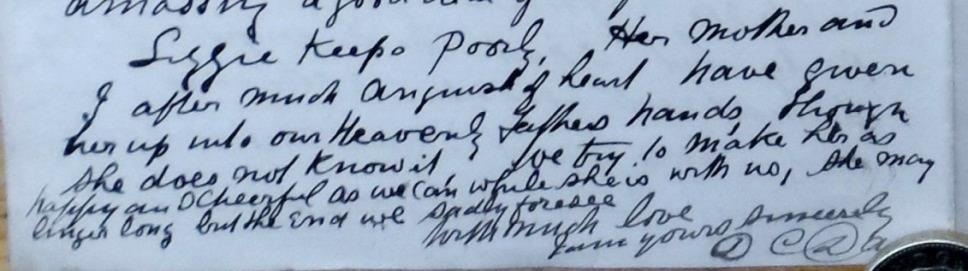 amassing a good deal of
Lizzie Keeps Poorly, Her mother and
I after much anguish of heart have given
her up into our Heavenly Fathers hands, though
she does not Know it, we try to make her as
happy and cheerful as we can while she is with us, she may
linger long but the End we sadly foresee
With much love
I am yours sincerely